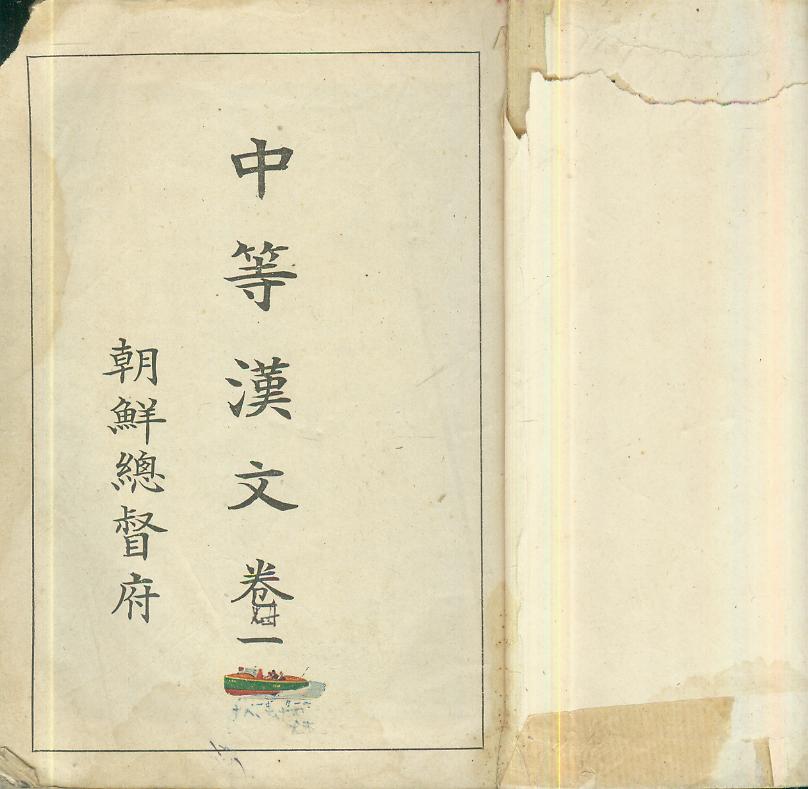 中等漢文 卷一
朝鮮總督府